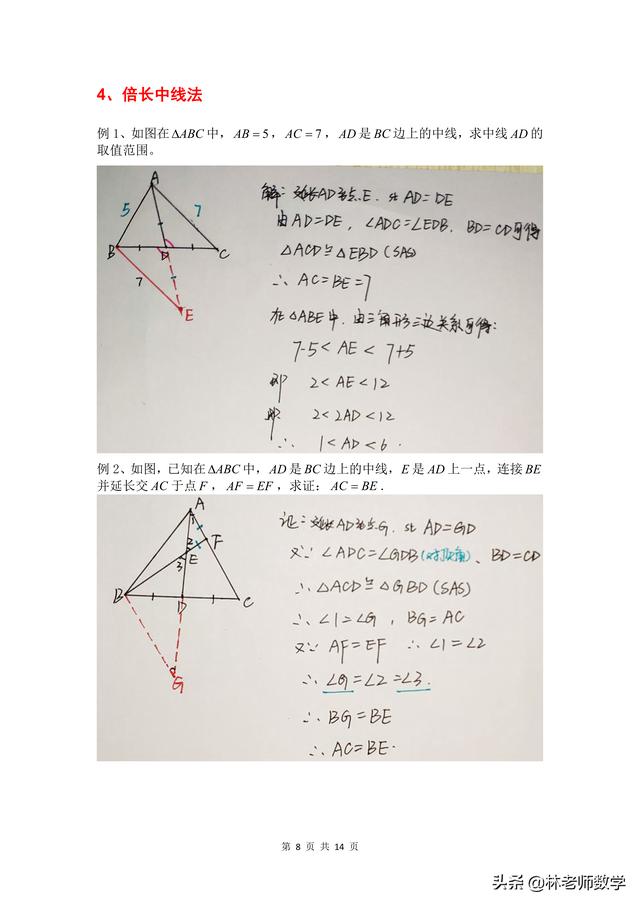 4、倍长中线法
例 1、如图在ΔABC中，AB＝5，AC＝7，AD是BC边上的中线，求中线AD的
取值范围。
A
5
7
B
D
C
7
E
解：延长AD至点E，使AD=DE
由AD=DE，∠ADC=∠EDB，BD=CD可得
△ACD≌△EBD(SAS)
∴ AC=BE=7
在△ABE中，由三角形三边关系可得：
7-5< AE < 7+5
即 2<AE<12
即 2<2AD<12
∴ 1<AD<6.
例 2、如图，已知在ΔABC中，AD是BC边上的中线，E是AD上一点，连接BE
并延长交AC于点F，AF＝EF，求证：AC＝BE．
A
1
2
F
3
E
B
D
C
G
证：延长AD至点G，使AD=GD
又∵∠ADC=∠GDB(对顶角)、BD=CD
∴△ACD≌△GBD(SAS)
∴∠1=∠G，BG=AC
又∵ AF=EF ∴∠1=∠2
∴∠G=∠2=∠3.
∴ BG=BE
∴ AC=BE.
第 8 页 共 14 页
头条 @林老师数学